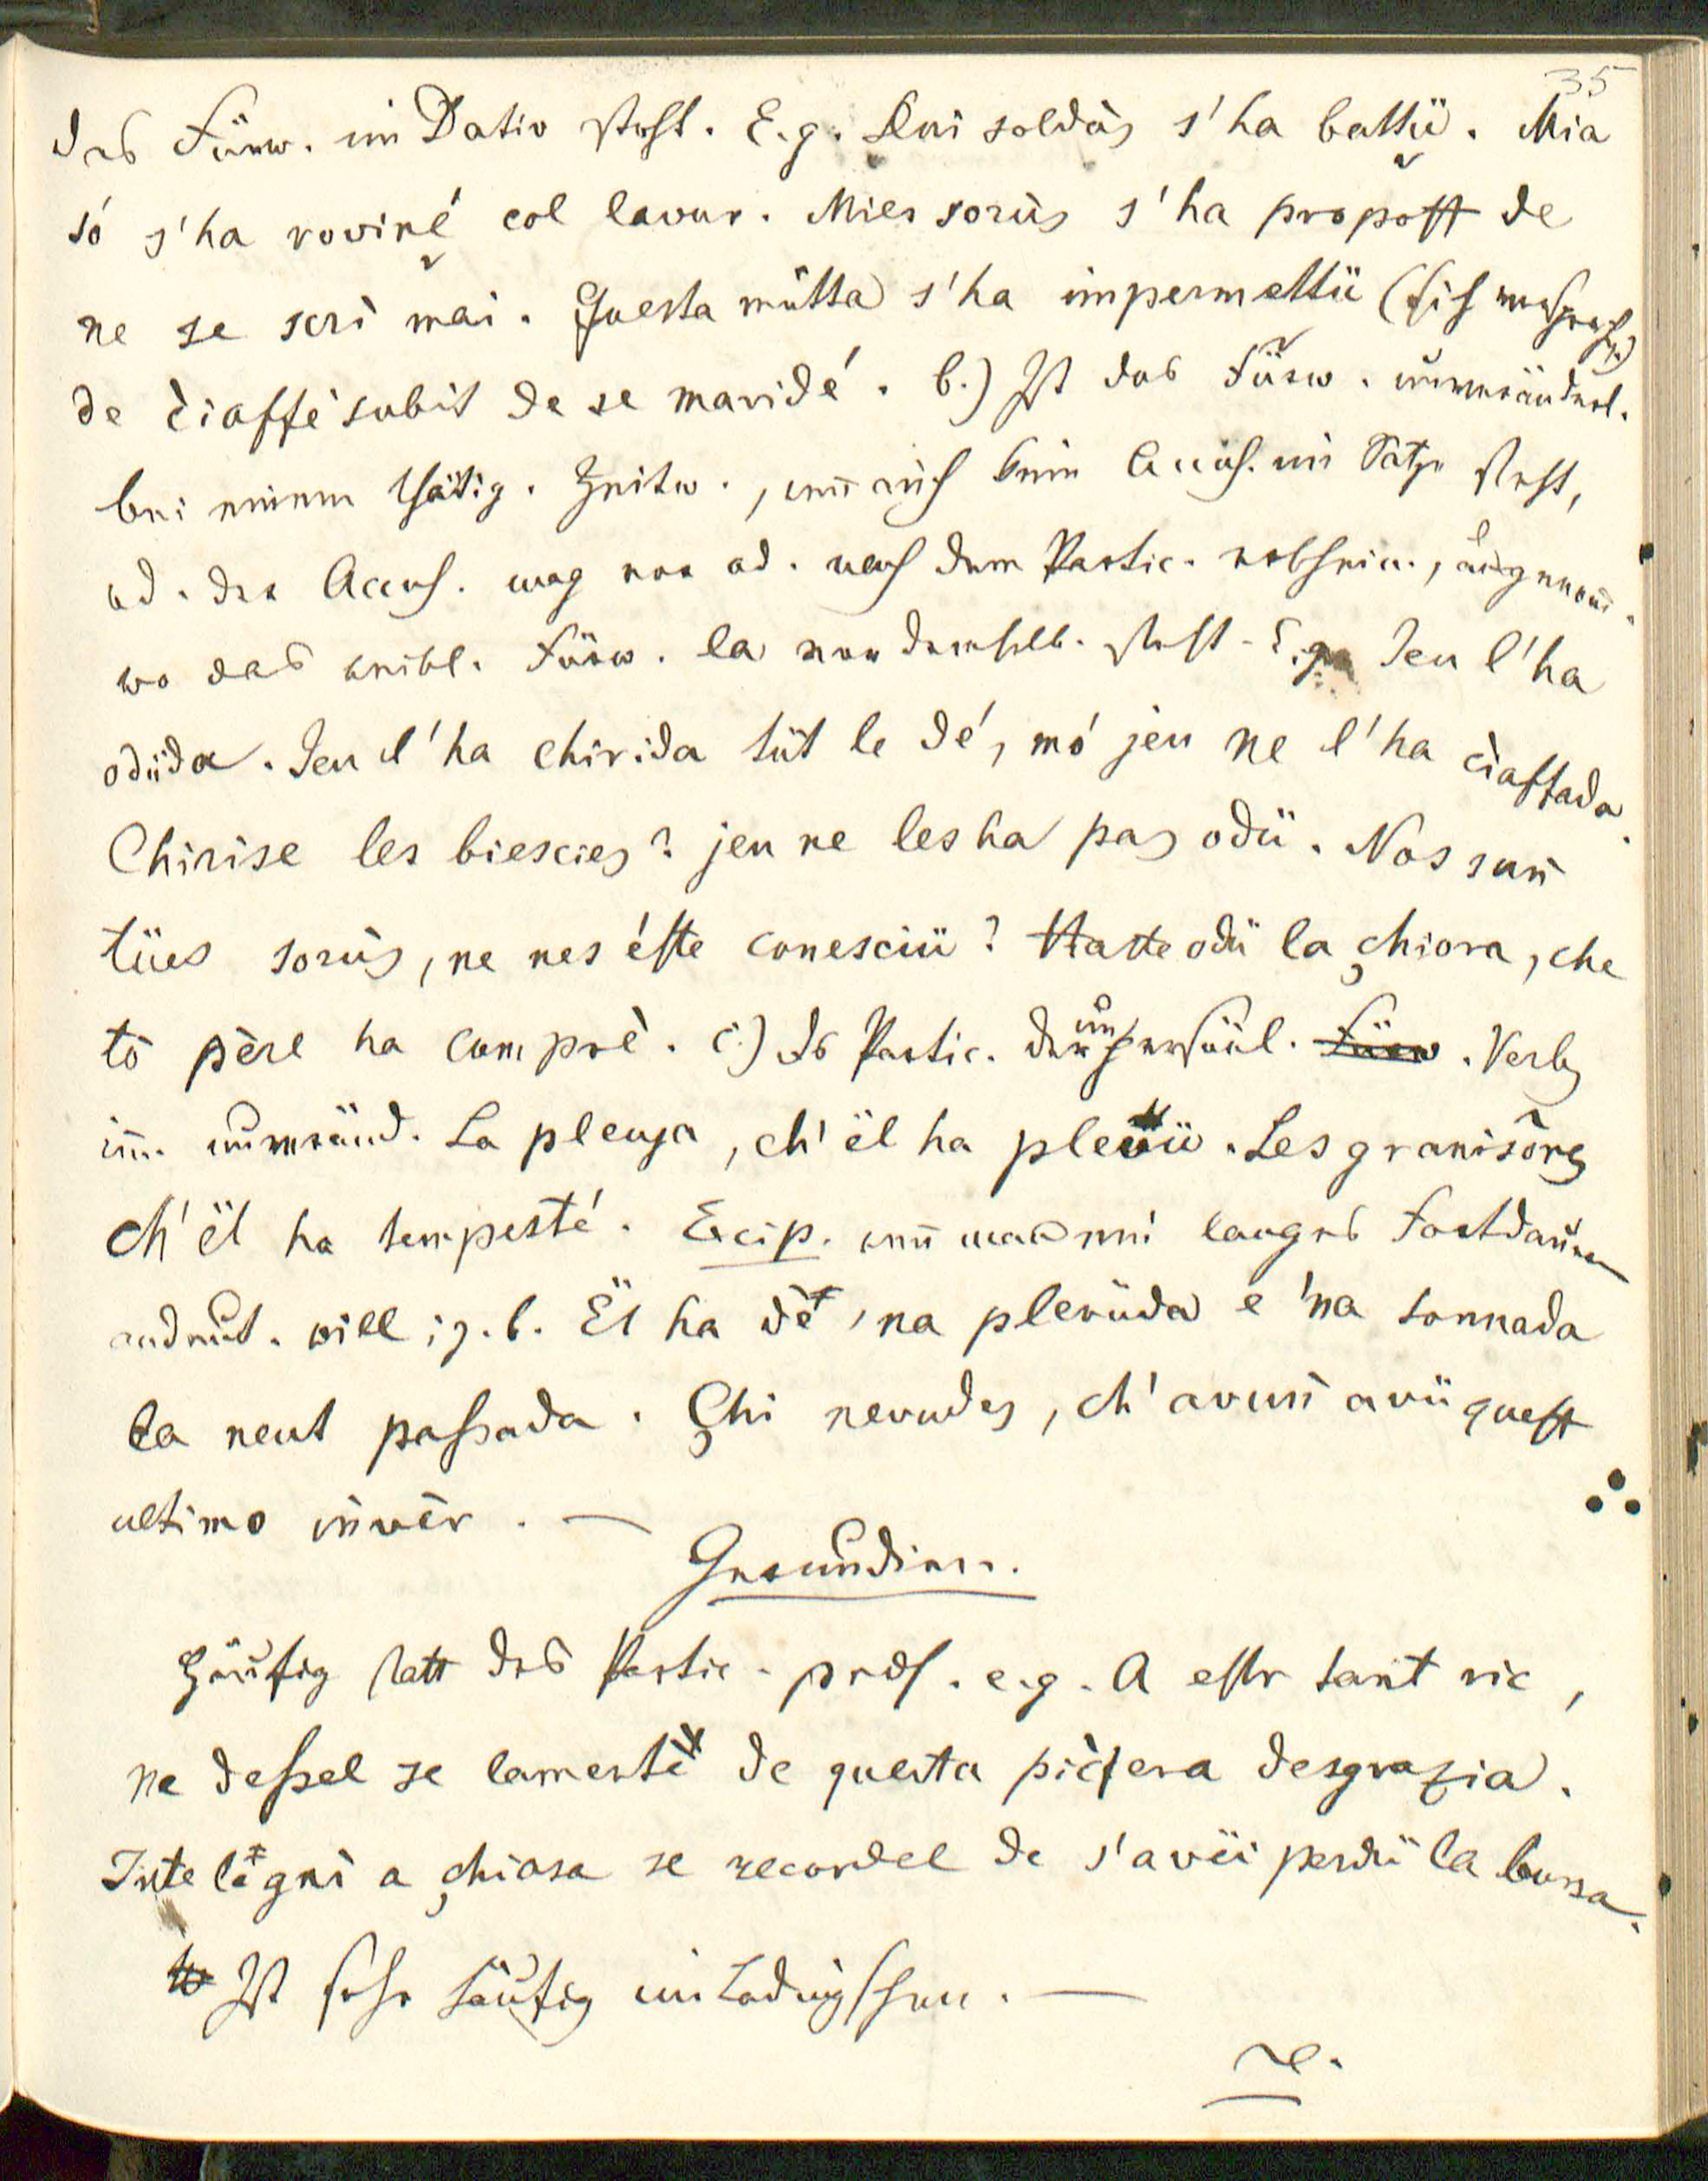 35
das Fürw. im Dativ steht. E.g. Dui soldàs s'ha battü. Mia
só s'ha roviné col lavur. Mies sorùs s'ha propost de
ne se scrì mai. Questa mütta s'ha impermettü (sich versproch.)
de ciaffé subit de se maridé. b.) Ist das Fürw. unveränderl.
bei einem thätig. Zeitw., weñ auch kein Accus. im Satze steht,
od. der Accus. mag vor od. nach dem Partic. vorhsein., ausgenom̄.
wo das weibl. Fürw. la vor demselb. steht. E.g. Jeu l'ha
odüda. Jeu l'ha chirida tüt le dé, mó jeu ne l'ha ciaffada.
Chirise les biescies? jeu ne les ha pas odü. Nos sun
tües sorùs, ne nes éste conesciü? Haste odü la chiora, che
tò père ha comprè. c.) Ds Partic. der unpersönl. Fürw. Verb.
im̄. unveränd. La pleuja, ch'ël ha plevü. Les granisores
ch'ël ha tempesté. Excip. weñ man ein langes Fortdauern
andeut. will; z.b. Ël ha dè 'na plevüda e 'na tonnada
la neut passada. Chi nevudes, ch'avun avü quest
ultimo invèr. —
Gerundien.
Häufig statt des Partic. präs. e.g. A estr tant ric,
ne dessel se lamenté de questa picera desgrazia.
Inte lägni a chiasa se recordel de s'avëi perdü la bursa.
Ist sehr häufig im Ladinischen. —